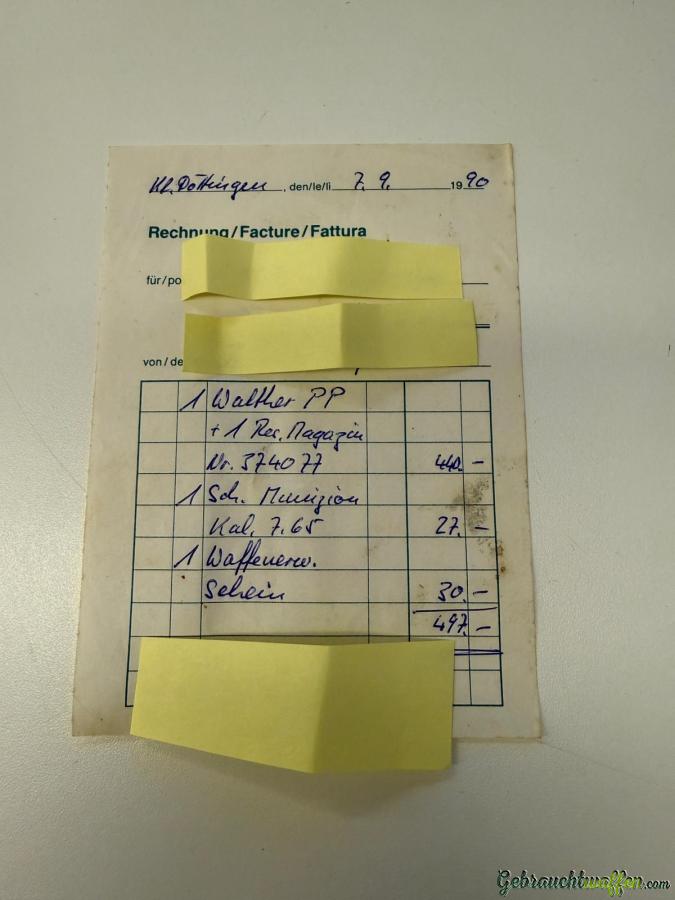 Kl. Döttingen, den/le/li 7. 9. 1990
Rechnung/Facture/Fattura
für/po
von/de
1 Walther PP
+ 1 Res. Magazin
Nr. 374077 440.–
1 Sch. Munizion
Kal. 7.65 27.–
1 Waffenerw.
Schein 30.–
497.–
Gebrauchtwaffen.com